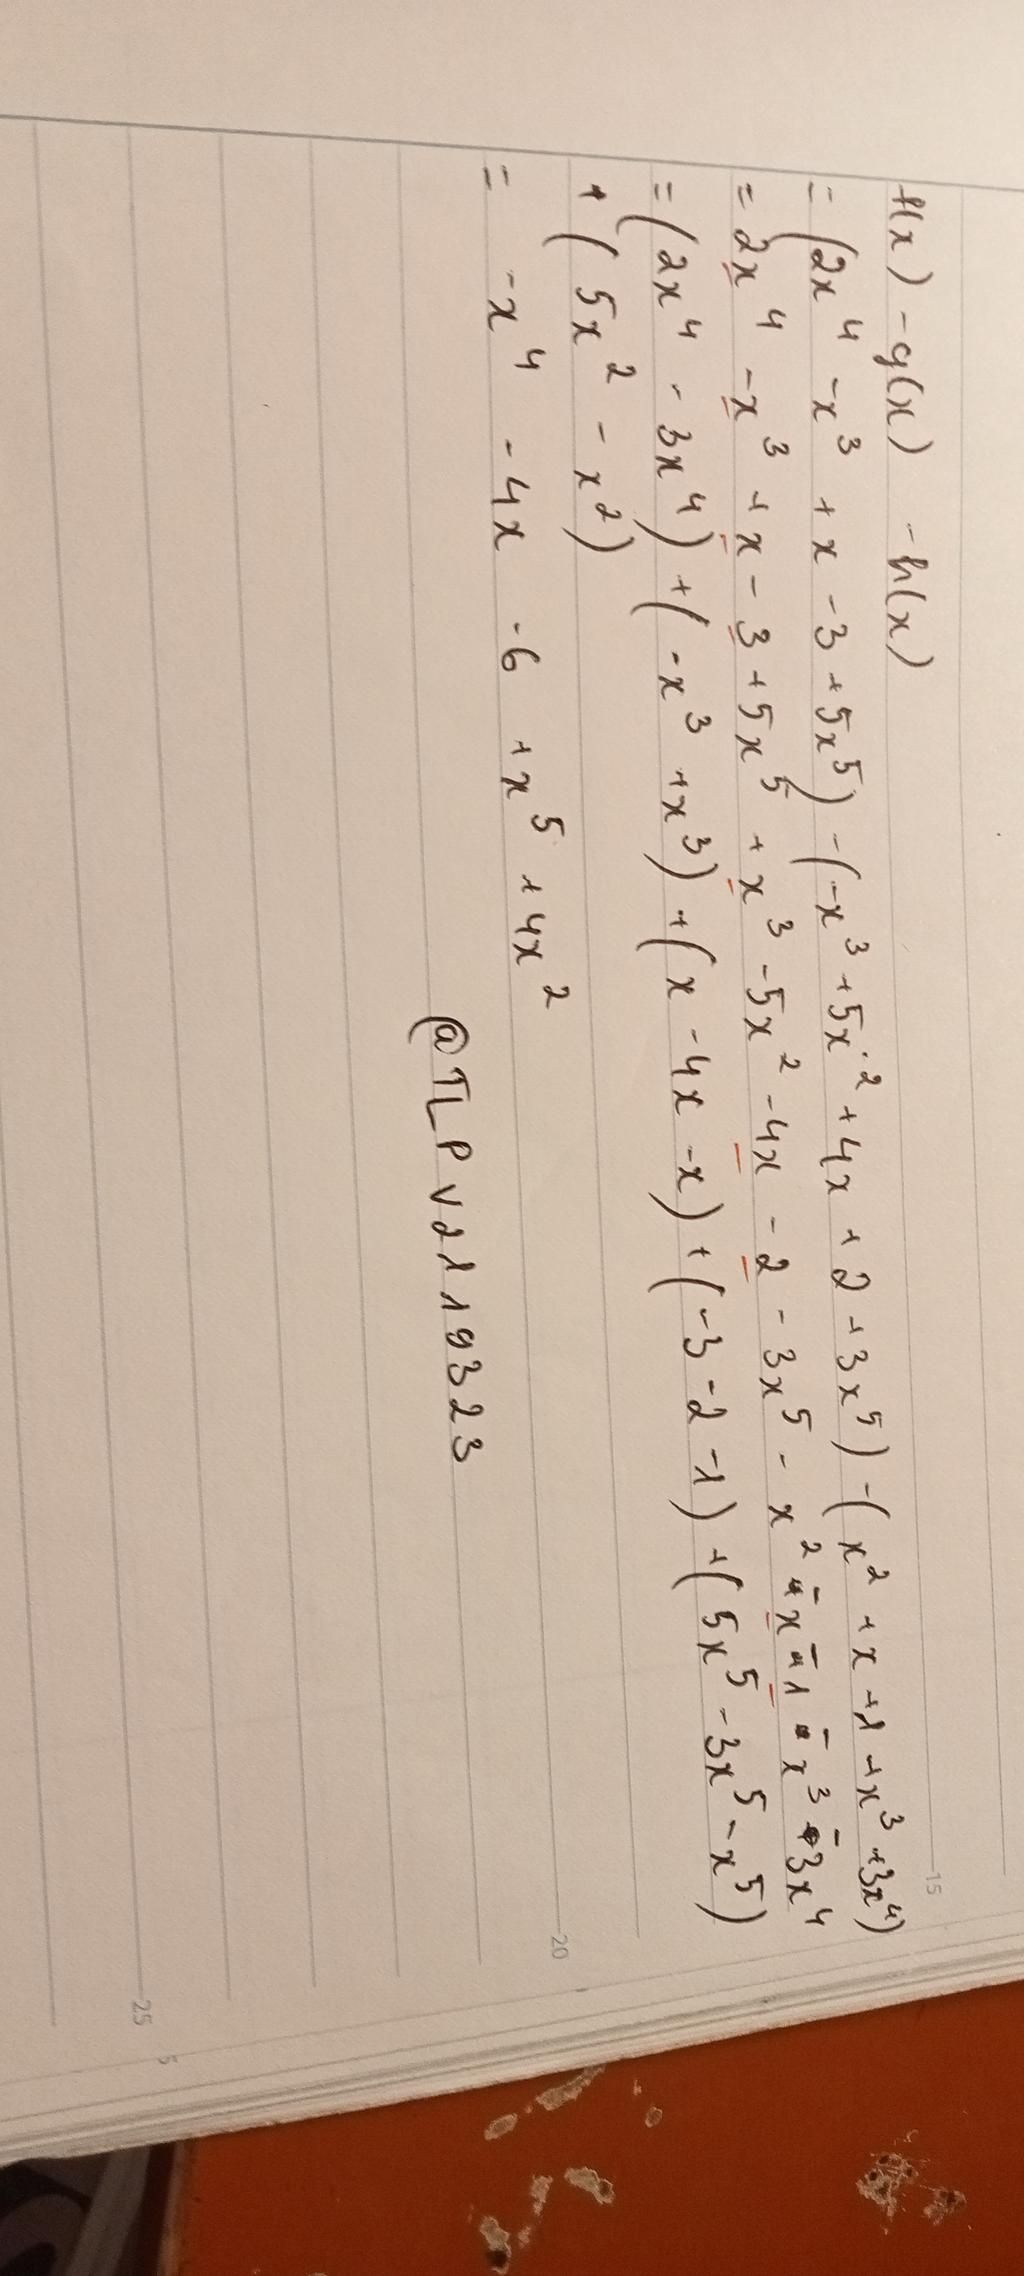 f(x) - g(x) - h(x)
= (2x⁴ - x³ + x - 3 + 5x⁵) - (-x³ + 5x² + 4x + 2 + 3x⁵) - (x² + x + 1 + x³ + 3x⁴)
= 2x⁴ - x³ + x - 3 + 5x⁵ + x³ - 5x² - 4x - 2 - 3x⁵ - x² - x - 1 - x³ - 3x⁴
= (2x⁴ - 3x⁴) + (-x³ + x³) + (x - 4x - x) + (-3 - 2 - 1) + (5x⁵ - 3x⁵ - x⁵)
+ (5x² - x²)
= -x⁴ - 4x - 6 + x⁵ + 4x²
@TLPV2119323
15
20
25
5